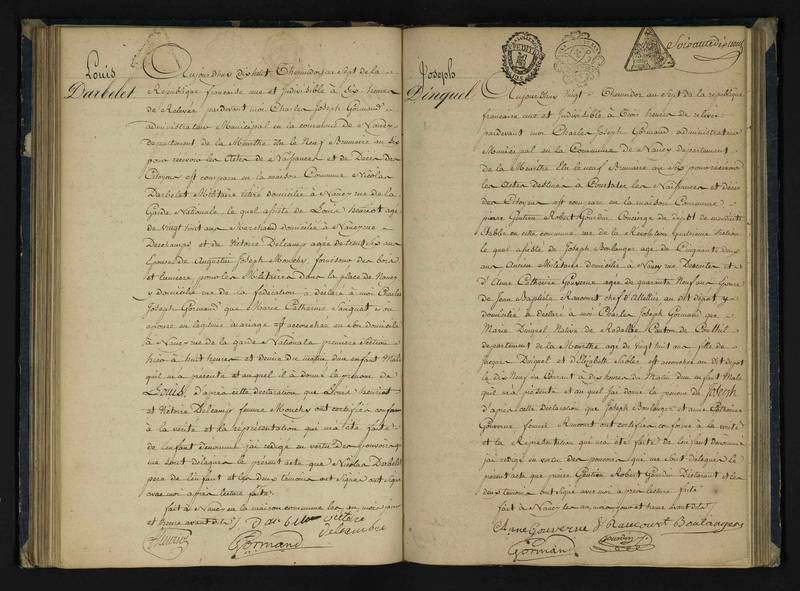 Louis
Darbelet
Aujourdhui dixhuit Thermidor an Sept de la
République francaise une et Indivisible à Six heures
de Relevée pardevant moi Charles Joseph Gormand
administrateur Municipal en la commune de Nancy
département de la Meurthe Elu le Neuf Brumaire an Six
pour recevoir les Actes de Naissances et de Décès des
Citoyens est comparu en la maison Commune Nicolas
Darbelet Militaire retiré domicilié à Nancy rue de la
Garde Nationale le quel assisté de Louis henriot agé
de vingt huit ans Marchand domicilié à Nancy rue
Deschamps et de Victoire Delcamp agée de ans
Epouse de Augustin Joseph Mouchy fournisseur des bois
et lumiere pour les Militaires dans la place de Nancy
y domiciliée rue de la fédération à déclaré à moi Charles
Joseph Gormand que Marie Catherine Sauquet son
épouse en légitime mariage est accouchée en son domicile
à Nancy rue de la garde Nationale premiere Section
hier à huit heures et demie du matin d'un Enfant Male
qu'il m'a présenté et auquel il à donné le prénom de
Louis, d'après cette déclaration que Louis henriot
et Victoire Delcamp femme Mouchy ont certifiée conforme
à la vérité et la représentation qui m'a été faite
de l'enfant dénommé j'ai rédigé en vertu des pouvoirs qui
me sont délégués le présent acte que Nicolas Darbelet
pere de l'enfant et les deux témoins ont Signé
avec moi après lecture faite.
fait à Nancy en la maison commune les an, mois, jour
et heure avant dits
victoire
delcambre
henriot
Gormand
Soixante dix
Joseph
Dinquel
Aujourdhui vingt Thermidor an Sept de la république
francaise une et Indivisible à Trois heures de relevée
pardevant moi Charles Joseph Gormand administrateur
Municipal en la Commune de Nancy département
de la Meurthe Elu le neuf Brumaire an Six pour recevoir
les Actes destinés à Constater les Naissances et décès
des Citoyens est comparu en la maison Commune
pierre Gautier Robert Gourdin Concierge du dépôt de mendicité
établie en cette commune rue de la Révolution quatrieme Section
le quel assisté de Joseph Boulanger agé de Cinquante deux
ans Ancien Militaire domicilié à Nancy rue et
d'Anne Catherine Gouverne agée de quarante Neuf ans Epouse
de Jean Baptiste Raucourt chef d'Attelier au dit dépôt y
domiciliée à déclaré à moi Charles Joseph Gormand que
Marie Dinquel Native de Rodalbe Canton de Conthil
département de la Meurthe agée de vingt huit ans fille de
Jacques Dinquel et d'Elizabeth Nicolas est accouchée au dit dépôt
le dix Neuf du Courant à dix heures du Matin d'un enfant Male
qu'il m'a présenté et au quel j'ai donné le prénom de Joseph
d'après cette Déclaration que Joseph Boulanger et anne Catherine
Gouverne femme Raucourt ont certifiée conforme à la vérité
et la Représentation qui m'a été faite de l'enfant dénommé
j'ai rédigé en vertu des pouvoirs qui me sont délégués le
présent acte que pierre Gautier Robert Gourdin Déclarant et les
deux témoins ont Signé avec moi après lecture faite
fait à Nancy les an, mois, jour et heure avant dits
Anne Gouverne f Raucourt Boulanger
Gormand
Gourdin